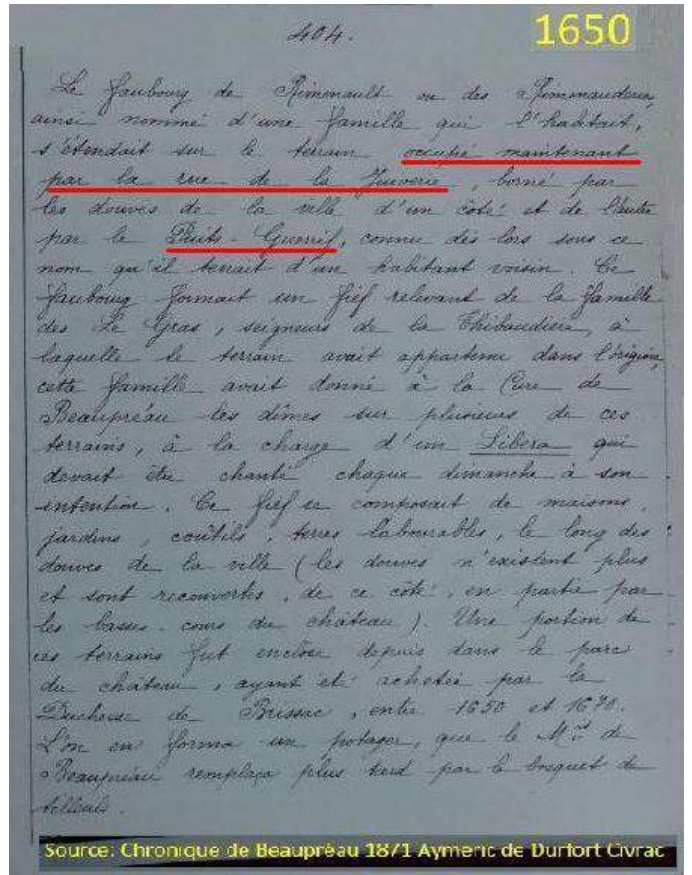 404.
1650
Le faubourg de Rimonault ou des Rimonauderies,
ainsi nommé d'une famille qui l'habitait,
s'étendait sur le terrain occupé maintenant
par la rue de la Juiverie, borné par
les douves de la ville d'un côté et de l'autre
par le Puits-Guerrif, connu dès lors sous ce
nom qu'il tenait d'un habitant voisin. Ce
faubourg formait un fief relevant de la famille
des Le Gras, seigneurs de la Thibaudière, à
laquelle le terrain avait appartenu dans l'origine,
cette famille avait donné à la Cure de
Beaupréau les dîmes sur plusieurs de ces
terrains, à la charge d'un Libera qui
devait être chanté chaque dimanche à son
intention. Ce fief se composait de maisons,
jardins, coûtils, terres labourables, le long des
douves de la ville (les douves n'existent plus
et sont recouvertes, de ce côté, en partie par
les basses-cours du château). Une portion de
ces terrains fut enclose depuis dans le parc
du château, ayant été achetés par la
Duchesse de Brissac, entre 1650 et 1670.
L'on en forma un potager, que le M.is de
Beaupréau remplaça plus tard par le bosquet de
tilleuls.
Source: Chronique de Beaupréau 1871 Aymeric de Durfort Civrac